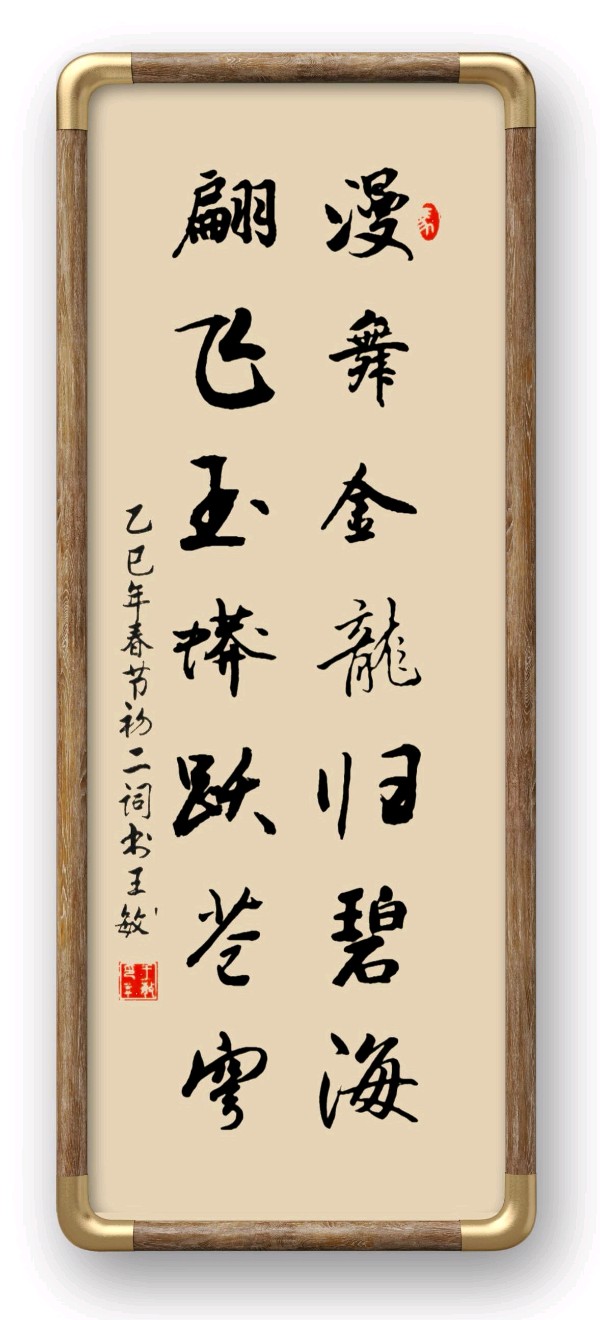 漫舞金龍归碧海
翩飞玉蟒跃苍穹
乙巳年春节初二词书王敏